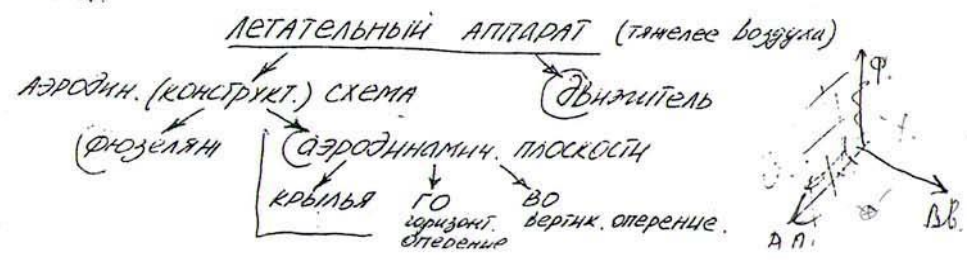 ЛЕТАТЕЛЬНЫЙ АППАРАТ (тяжелее воздуха)
АЭРОДИН. (КОНСТРУКТ.) СХЕМА
ДВИЖИТЕЛЬ
ФЮЗЕЛЯЖ
АЭРОДИНАМИЧ. ПЛОСКОСТИ
КРЫЛЬЯ
ГО
ВО
горизонт.
оперение
вертик. оперение.
Ф.
Дв.
А П.